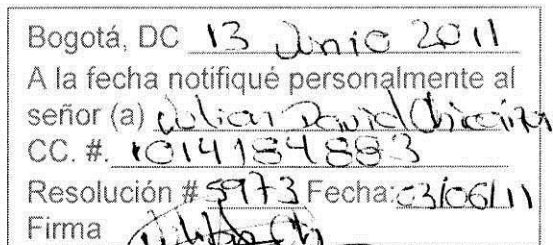 Bogotá, DC 13 Junio 2011
A la fecha notifiqué personalmente al
señor (a) Julian David
CC. #. 1014184883
Resolución # 5973 Fecha: 03/06/11
Firma